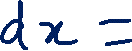 dx =